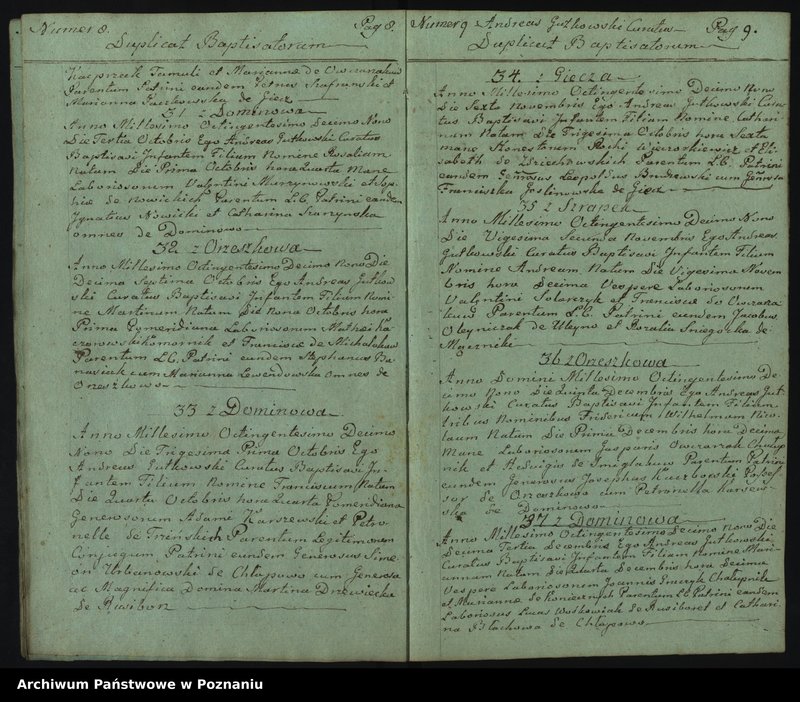 Numer 8.
Pag 8.
Duplicat Baptisatorum
Kacprzak Famuli et Marianna de Owczarakow
Parentum Patrini eundem Petrus Szafranski et
Marianna de Giecz
31 z Dominowa
Anno Millesimo Octingentesimo Decimo Nono
Die Tertia Octobris Ego Andreas Gutkowski Curatus
Baptisavi Infantem Filiam Nomine Rosaliam
Natam Die Prima Octobris hora Quarta Mane
Laboriosorum Valentini Murzynowski et Sop-
hiæ de Nowickich Parentum L.C. Patrini eandem
Ignatius Nowicki et Catharina Szarzynska
omnes de Dominowo
32 z Orzeszkowa
Anno Millesimo Octingentesimo Decimo Nono Die
Decima Septima Octobris Ego Andreas Gutkow
ski Curatus Baptisavi Infantem Filium Nomi-
ne Martinum Natum Die Nona Octobris hora
Prima Pomeridiana Laboriosorum Mathei Ka-
czorowski Komornik et Franciscæ de Michalakow
Parentum L.C. Patrini eundem Stephanus Ba-
nasiak cum Marianna Lewendowska omnes de
Orzeszkowo
33 z Dominowa
Anno Millesimo Octingentesimo Decimo
Nono Die Trigesima Prima Octobris Ego
Andreas Gutkowski Curatus Baptisavi In-
fantem Filium Nomine Franciscum Natum
Die Quarta Octobris hora Quarta Pomeridiana
Generosorum Adami Karszewski et Petro-
nelle de Parentum Legitimorum
Conjugum Patrini eundem Generosus Sime-
on Urbanowski de Chłapowo cum Generosa
ac Magnifica Domina Martina Drzewiecka
de Rusibor
Numer 9 Andreas Gutkowski Curatus
Pag 9.
Duplicat Baptisatorum
34 z Giecza
Anno Millesimo Octingentesimo Decimo Nono
Die Sexta Novembris Ego Andreas Gutkowski Cura-
tus Baptisavi Infantem Filiam Nomine Cathari-
nam Natam Die Trigesima Octobris hora Sexta
mane Honestorum Rochi et Eli-
sabeth de Parentum L.C. Patrini
eandem Leopoldus cum
Franciszka de Giecz
35 z Szrapek
Anno Millesimo Octingentesimo Decimo Nono
Die Vigesima Secunda Novembris Ego Andreas
Gutkowski Curatus Baptisavi Infantem Filium
Nomine Andream Natum Die Vigesima Novem
bris hora Decima Vespere Laboriosorum
Valentini Solarczyk et Franciscæ de Owczara
kow Parentum L.C. Patrini eundem Jacobus
Oleyniczak de Uleyno et Rozalia de
Mączniki
36 z Orzeszkowa
Anno Domini Millesimo Octingentesimo De-
cimo Nono Die Quinta Decembris Ego Andreas Gut-
kowski Curatus Baptisavi Infantem Filium
tribus Nominibus Fridericum Wilhelmum Nico-
laum Natum Die Prima Decembris hora Decima
Mane Laboriosorum Gasparis Owczarzak Chałup-
nik et Hedvigis de Parentum Patrini
eundem Generosus Josephus Posses
sor de Orzeszkowo cum Petronella Karsew-
ska de Dominowo
37 z Dominowa
Anno Millesimo Octingentesimo Decimo Nono Die
Decima Tertia Decembris Ego Andreas Gutkowski
Curatus Baptisavi Infantem Filiam Nomine Mari-
annam Natam Die Quarta Decembris hora Decima
Vespere Laboriosorum Joannis Chałupnik
et Mariannæ de Parentum L.C. Patrini eandem
Laboriosus Lucas Woskowiak de Rusiborz et Cathari-
na Błachowa de Chłapowo
Archiwum Państwowe w Poznaniu